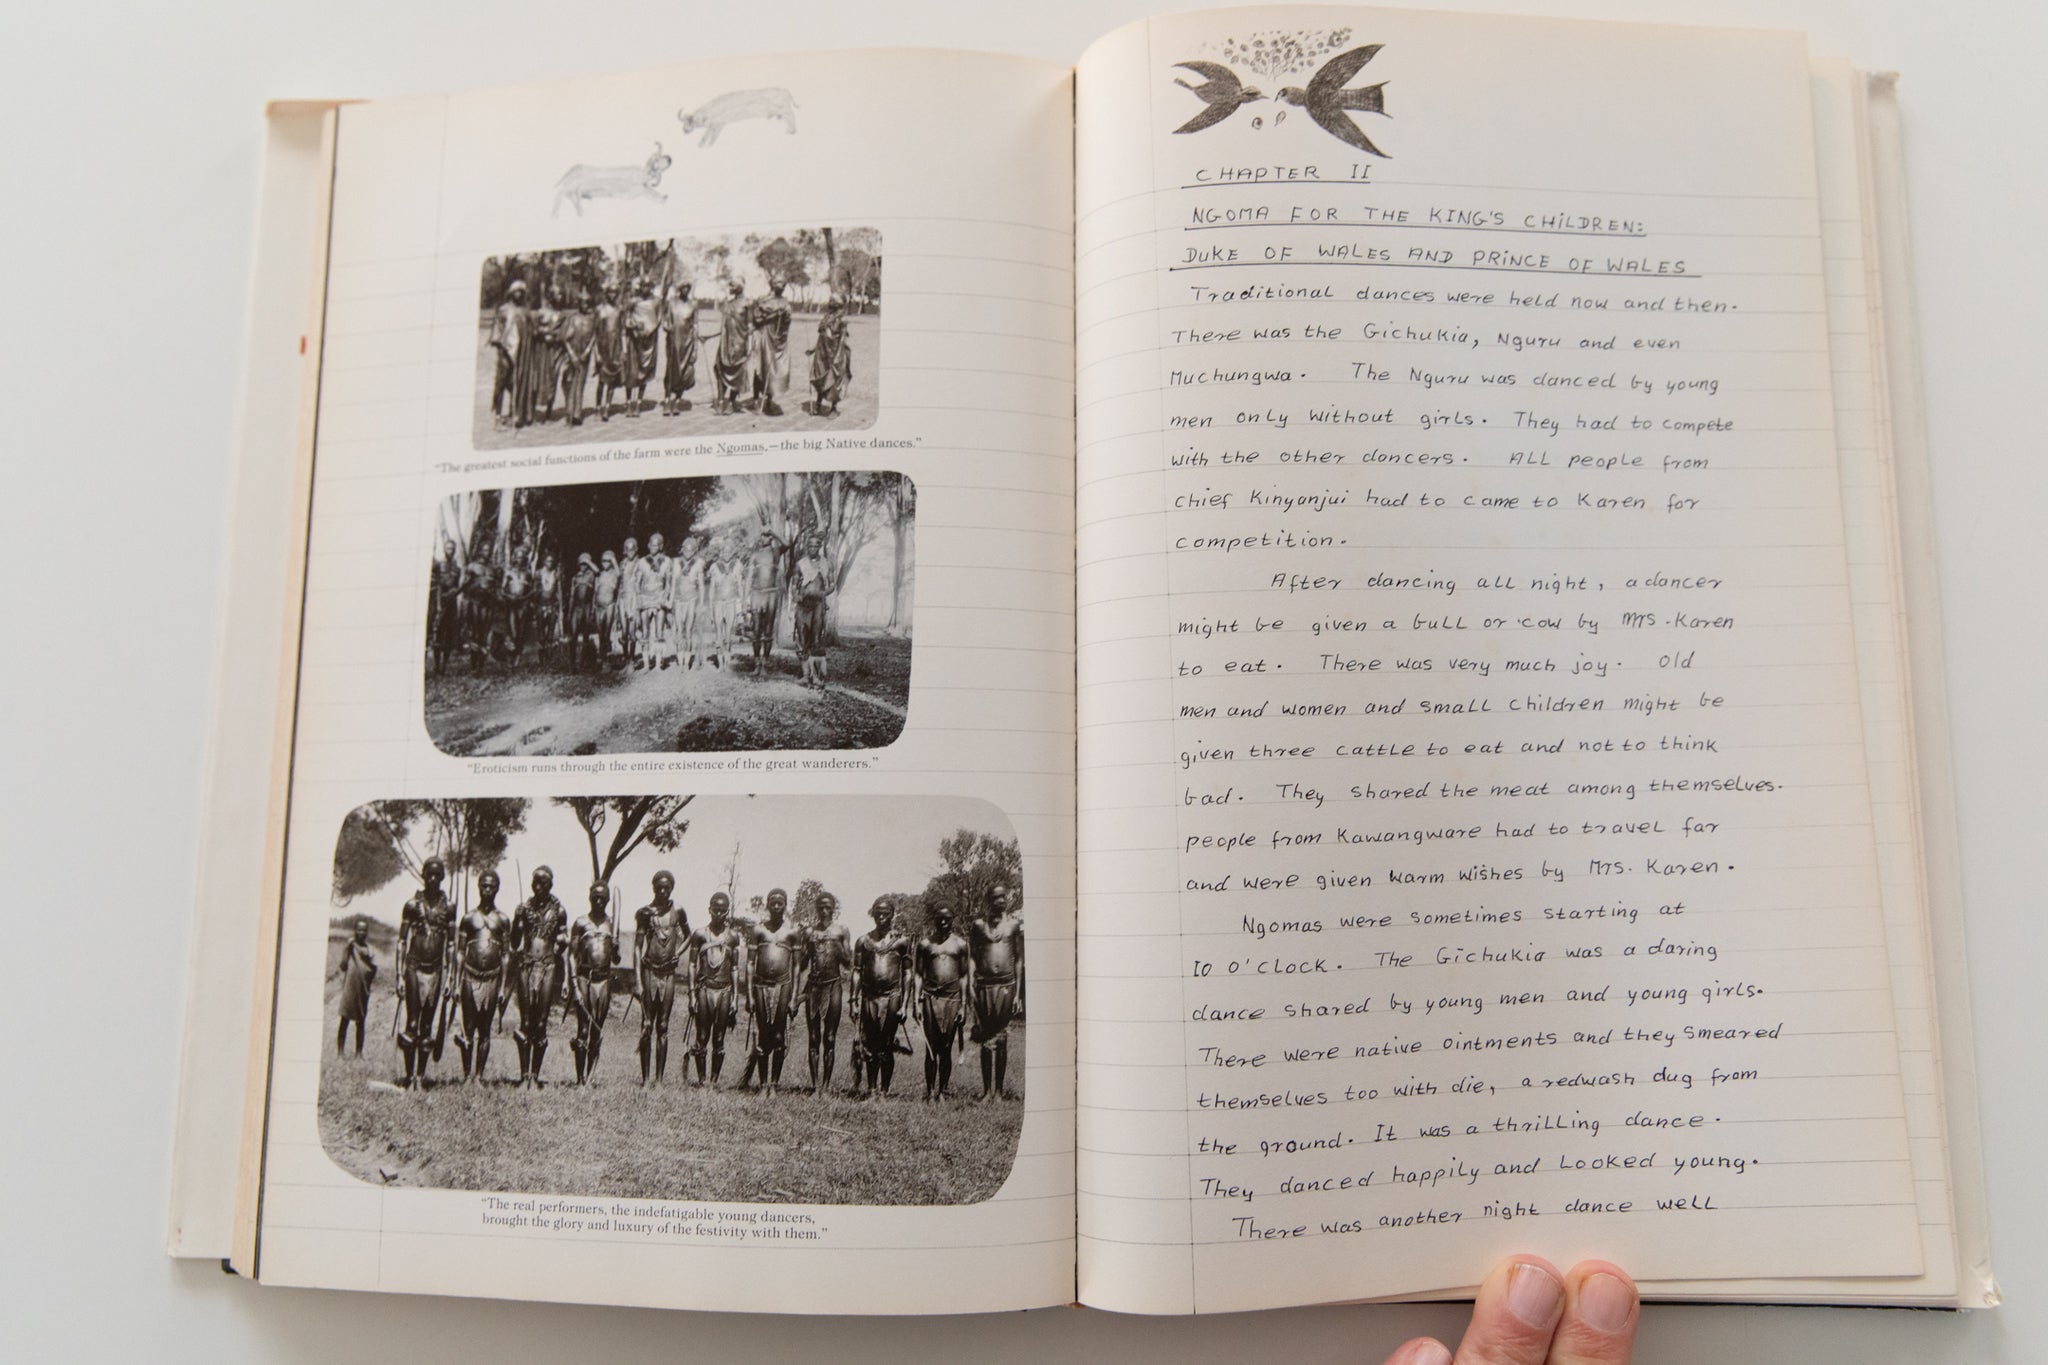 "The greatest social functions of the farm were the Ngomas,—the big Native dances."
"Eroticism runs through the entire existence of the great wanderers."
"The real performers, the indefatigable young dancers,
brought the glory and luxury of the festivity with them."
CHAPTER II
NGOMA FOR THE KING'S CHILDREN:
DUKE OF WALES AND PRINCE OF WALES
Traditional dances were held now and then.
There was the Gichukia, Nguru and even
Muchungwa. The Nguru was danced by young
men only without girls. They had to compete
with the other dancers. ALL people from
chief Kinyanjui had to came to Karen for
competition.
After dancing all night, a dancer
might be given a bull or cow by Mrs. Karen
to eat. There was very much joy. Old
men and women and small children might be
given three cattle to eat and not to think
bad. They shared the meat among themselves.
people from Kawangware had to travel far
and were given warm wishes by Mrs. Karen.
Ngomas were sometimes starting at
10 O'CLOCK. The Gichukia was a daring
dance shared by young men and young girls.
There were native ointments and they smeared
themselves too with die, a redwash dug from
the ground. It was a thrilling dance.
They danced happily and Looked young.
There was another night dance well